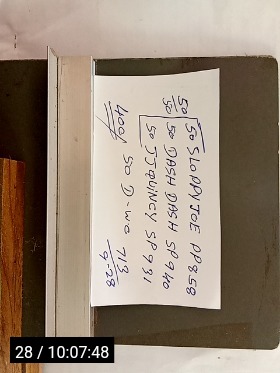 50 SLOPPY JOE PP 8.58
50 50 DASH DASH SP 940
50 JJ QUINCY SP 931
400 50 D-WG 713
9-28
28 / 10:07:48